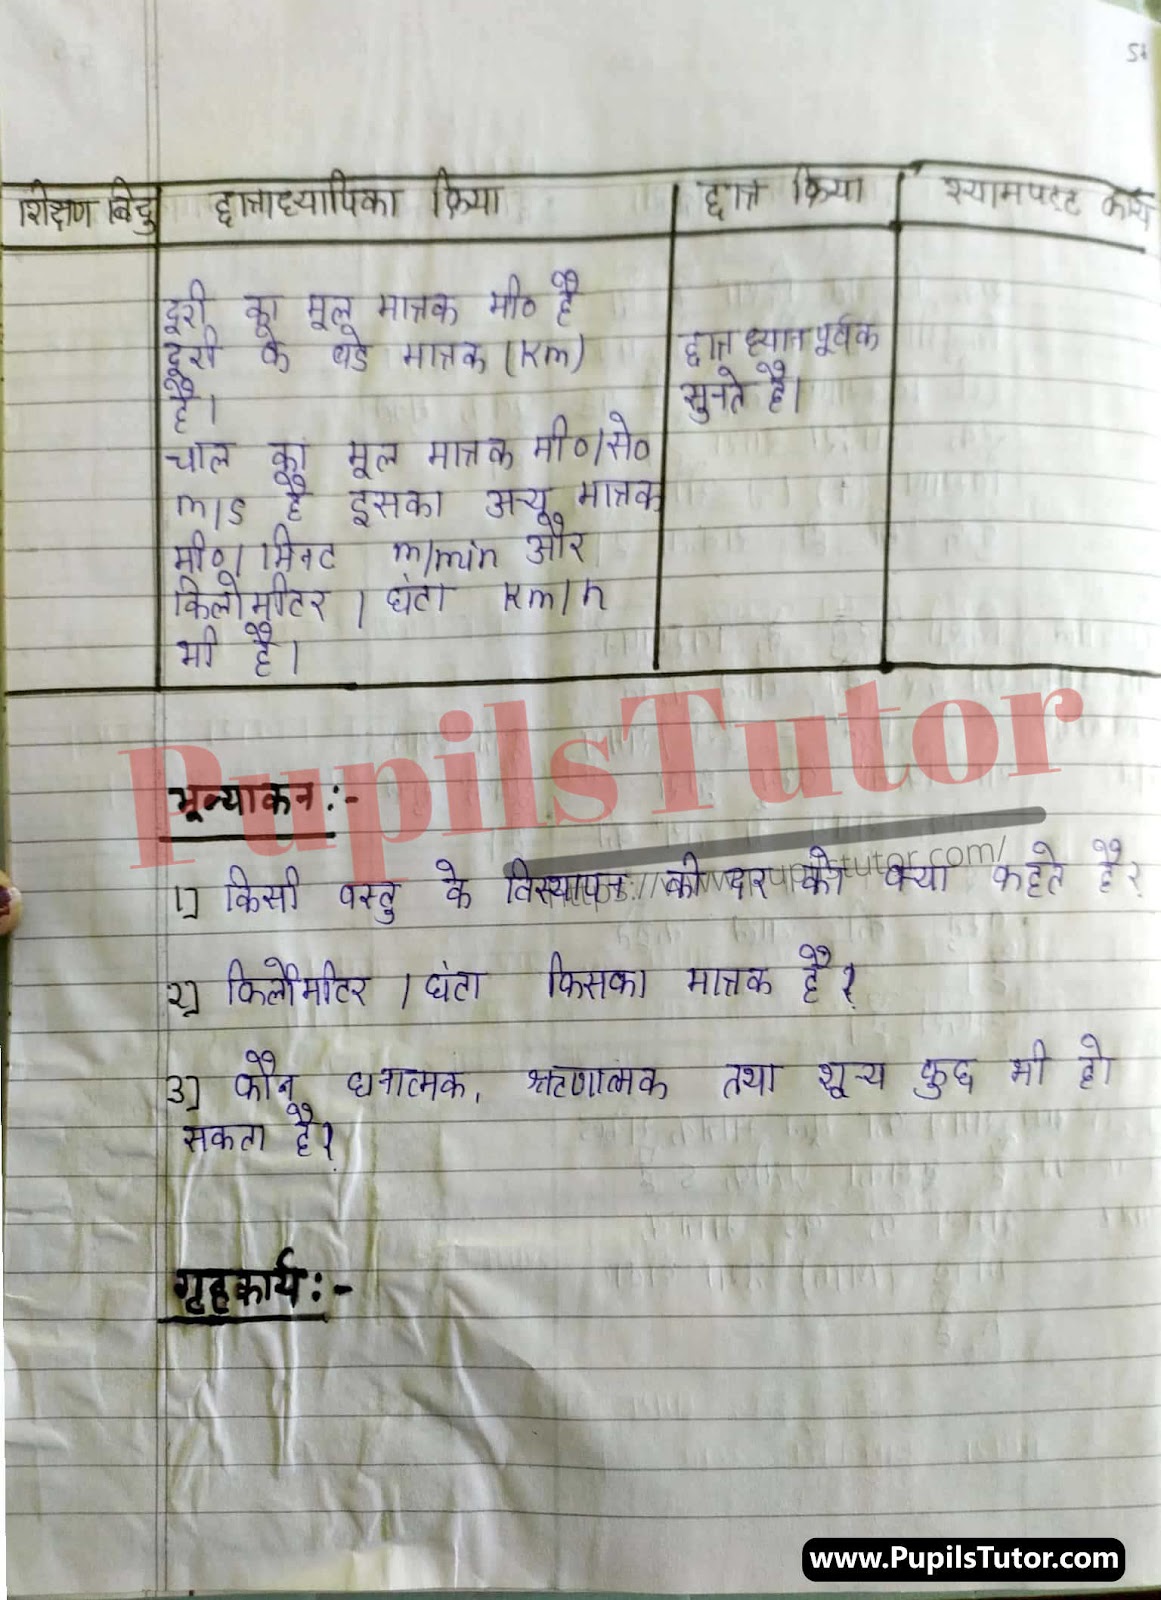 57
शिक्षण बिंदु छात्राध्यापिका क्रिया छात्र क्रिया श्यामपट्ट कार्य
दूरी का मूल मात्रक मी० है
दूरी के बडे मात्रक (km)
है।
चाल का मूल मात्रक मी०/से०
m/s है इसका अन्य मात्रक
मी०/मिनट m/min और
किलोमीटर/घंटा km/h
भी है।
छात्र ध्यानपूर्वक
सुनते है।
PupilsTutor
मूल्याकन:-
1) किसी वस्तु के विस्थापन की दर को क्या कहते है?
2) किलोमीटर/घंटा किसका मात्रक है?
3) कौन धनात्मक, ऋणात्मक तथा शून्य कुछ भी हो
सकता है?
गृहकार्य:-
www.PupilsTutor.com